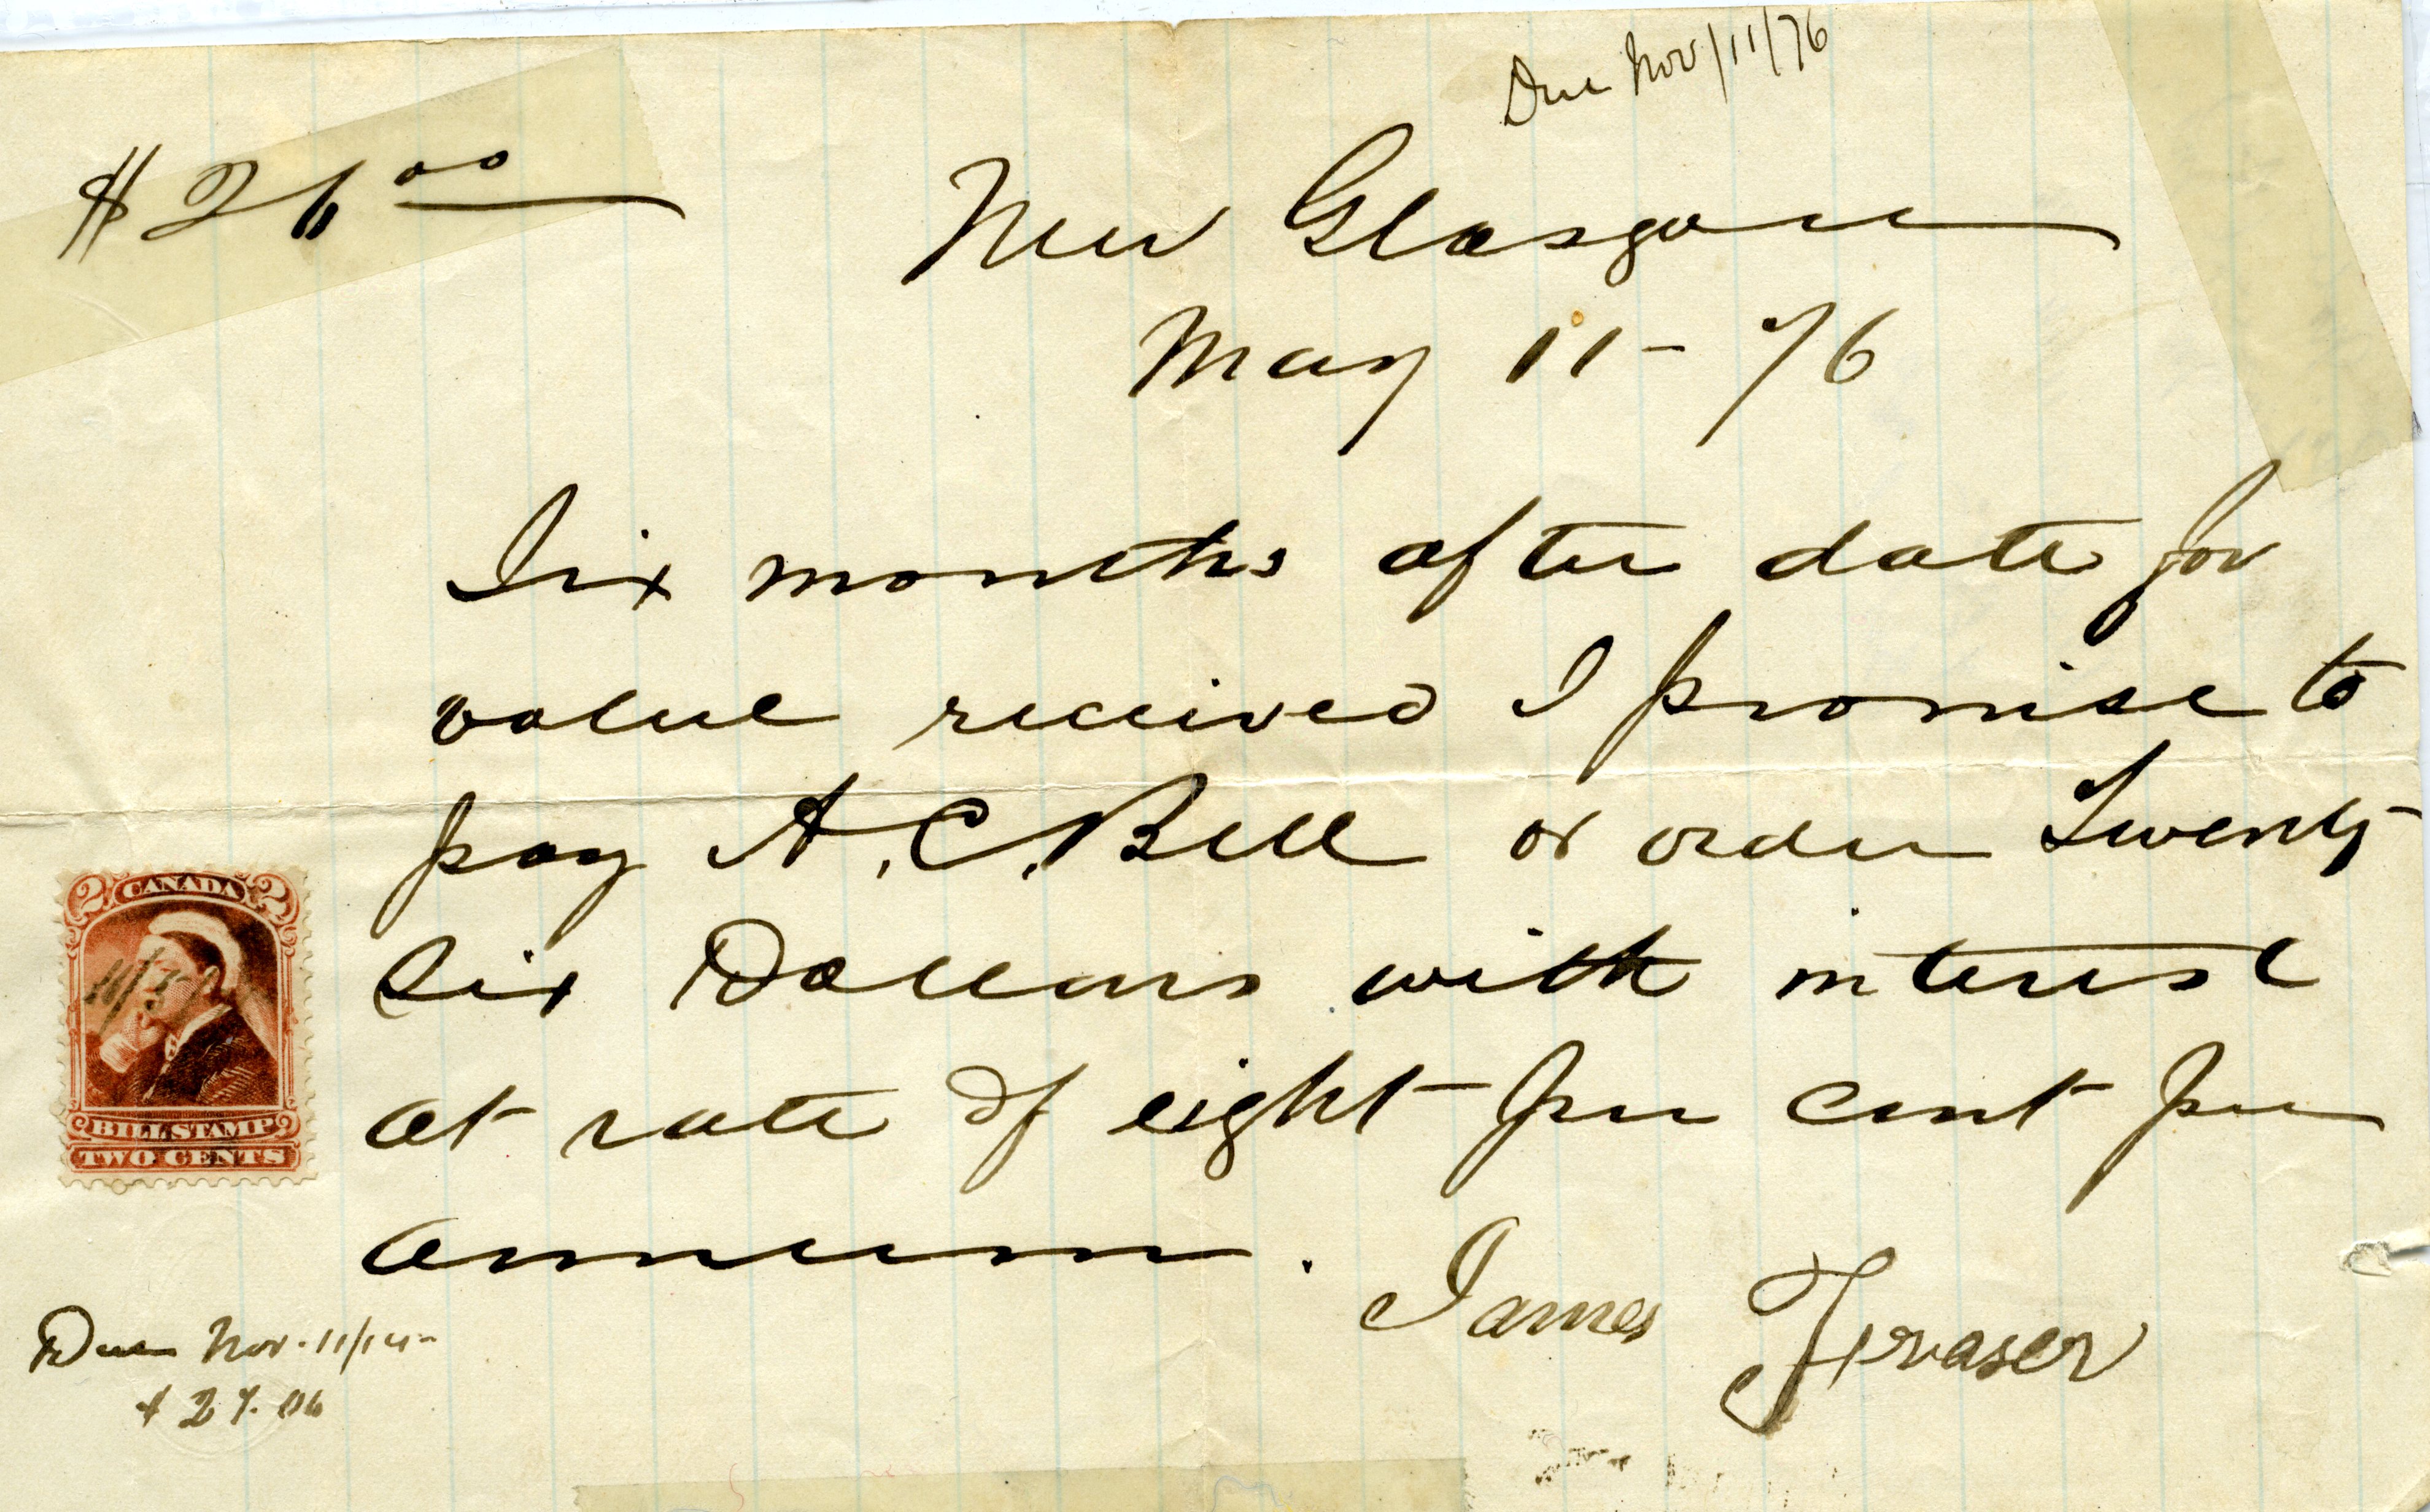 Due Nov/11/76
$26.00
New Glasgow
May 11 - 76
Six months after date for
value received I promise to
pay A.C. Bell or order Twenty
Six Dollars with interest
at rate of eight per cent per
annum.
James Fraser
2 CANADA 2
BILL STAMP
TWO CENTS
Due Nov. 11/14
$27.06